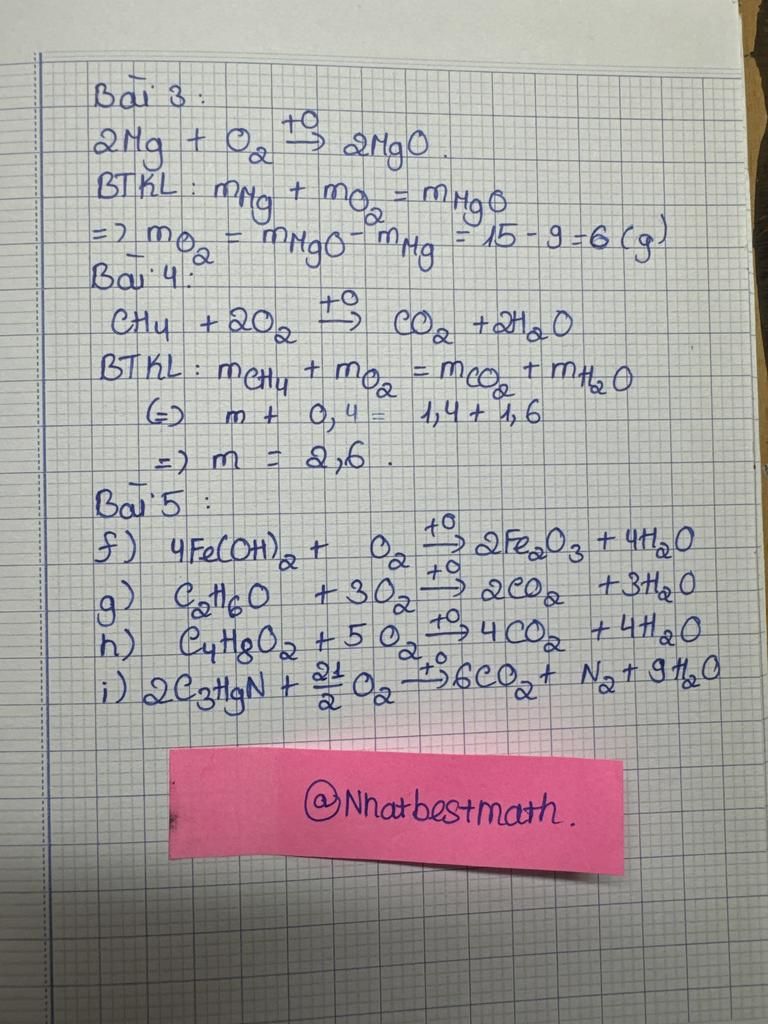 Bài 3:
2Mg + O₂ →(t⁰) 2MgO.
BTKL: mMg + mO₂ = mMgO
=> mO₂ = mMgO - mMg = 15 - 9 = 6 (g)
Bài 4:
CH₄ + 2O₂ →(t⁰) CO₂ + 2H₂O
BTKL: mCH₄ + mO₂ = mCO₂ + mH₂O
(=) m + 0,4 = 1,4 + 1,6
=> m = 2,6.
Bài 5:
f) 4Fe(OH)₂ + O₂ →(t⁰) 2Fe₂O₃ + 4H₂O
g) C₂H₆O + 3O₂ →(t⁰) 2CO₂ + 3H₂O
h) C₄H₈O₂ + 5O₂ →(t⁰) 4CO₂ + 4H₂O
i) 2C₃H₉N + 21/2 O₂ →(t⁰) 6CO₂ + N₂ + 9H₂O
@Nhatbestmath.